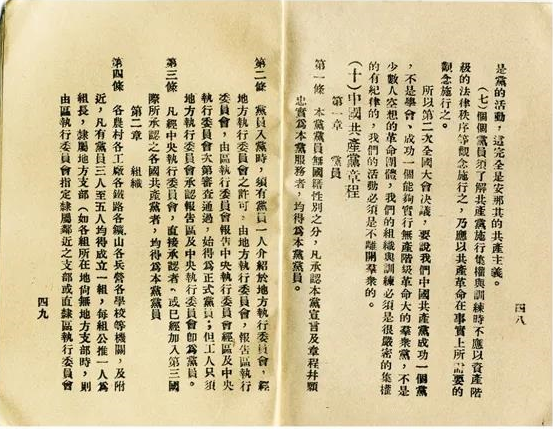 四八
是黨的活動，這完全是安那其的共產主義。
(七)個個黨員須了解共產黨施行集權與訓練時不應以資產階
級的法律秩序等觀念施行之，乃應以共產革命在事實上所需要的
觀念施行之。
所以第二次全國大會決議，要說我們中國共產黨成功一個黨
，不是學會，成功一個能夠實行無產階級革命大的羣衆黨，不是
少數人空想的革命團體，我們的組織與訓練必須是很嚴密的集權
的有紀律的，我們的活動必須是不離開羣衆的。
(十)中國共產黨章程
第一章　黨員
第一條　本黨黨員無國籍性別之分，凡承認本黨宣言及章程幷願
忠實爲本黨服務者，均得爲本黨黨員。
第二條　黨員入黨時，須有黨員一人介紹於地方執行委員會，經
地方執行委員會之許可，由地方執行委員會，報告區執行
委員會，由區執行委員會報告中央執行委員會經區及中央
執行委員會次第審查通過，始得爲正式黨員；但工人只須
地方執行委員會承認報告區及中央執行委員會卽爲黨員。
第三條　凡經中央執行委員會，直接承認者，或已經加入第三國
際所承認之各國共產黨者，均得爲本黨黨員
第二章　組織
第四條　各農村各工廠各鐵路各鑛山各兵營各學校等機關，及附
近，凡有黨員三人至五人均得成立一組，每組公推一人爲
組長，隸屬地方支部（如各組所在地尙無地方支部時，則
由區執行委員會指定隸屬鄰近之支部或直隸區執行委員會
四九